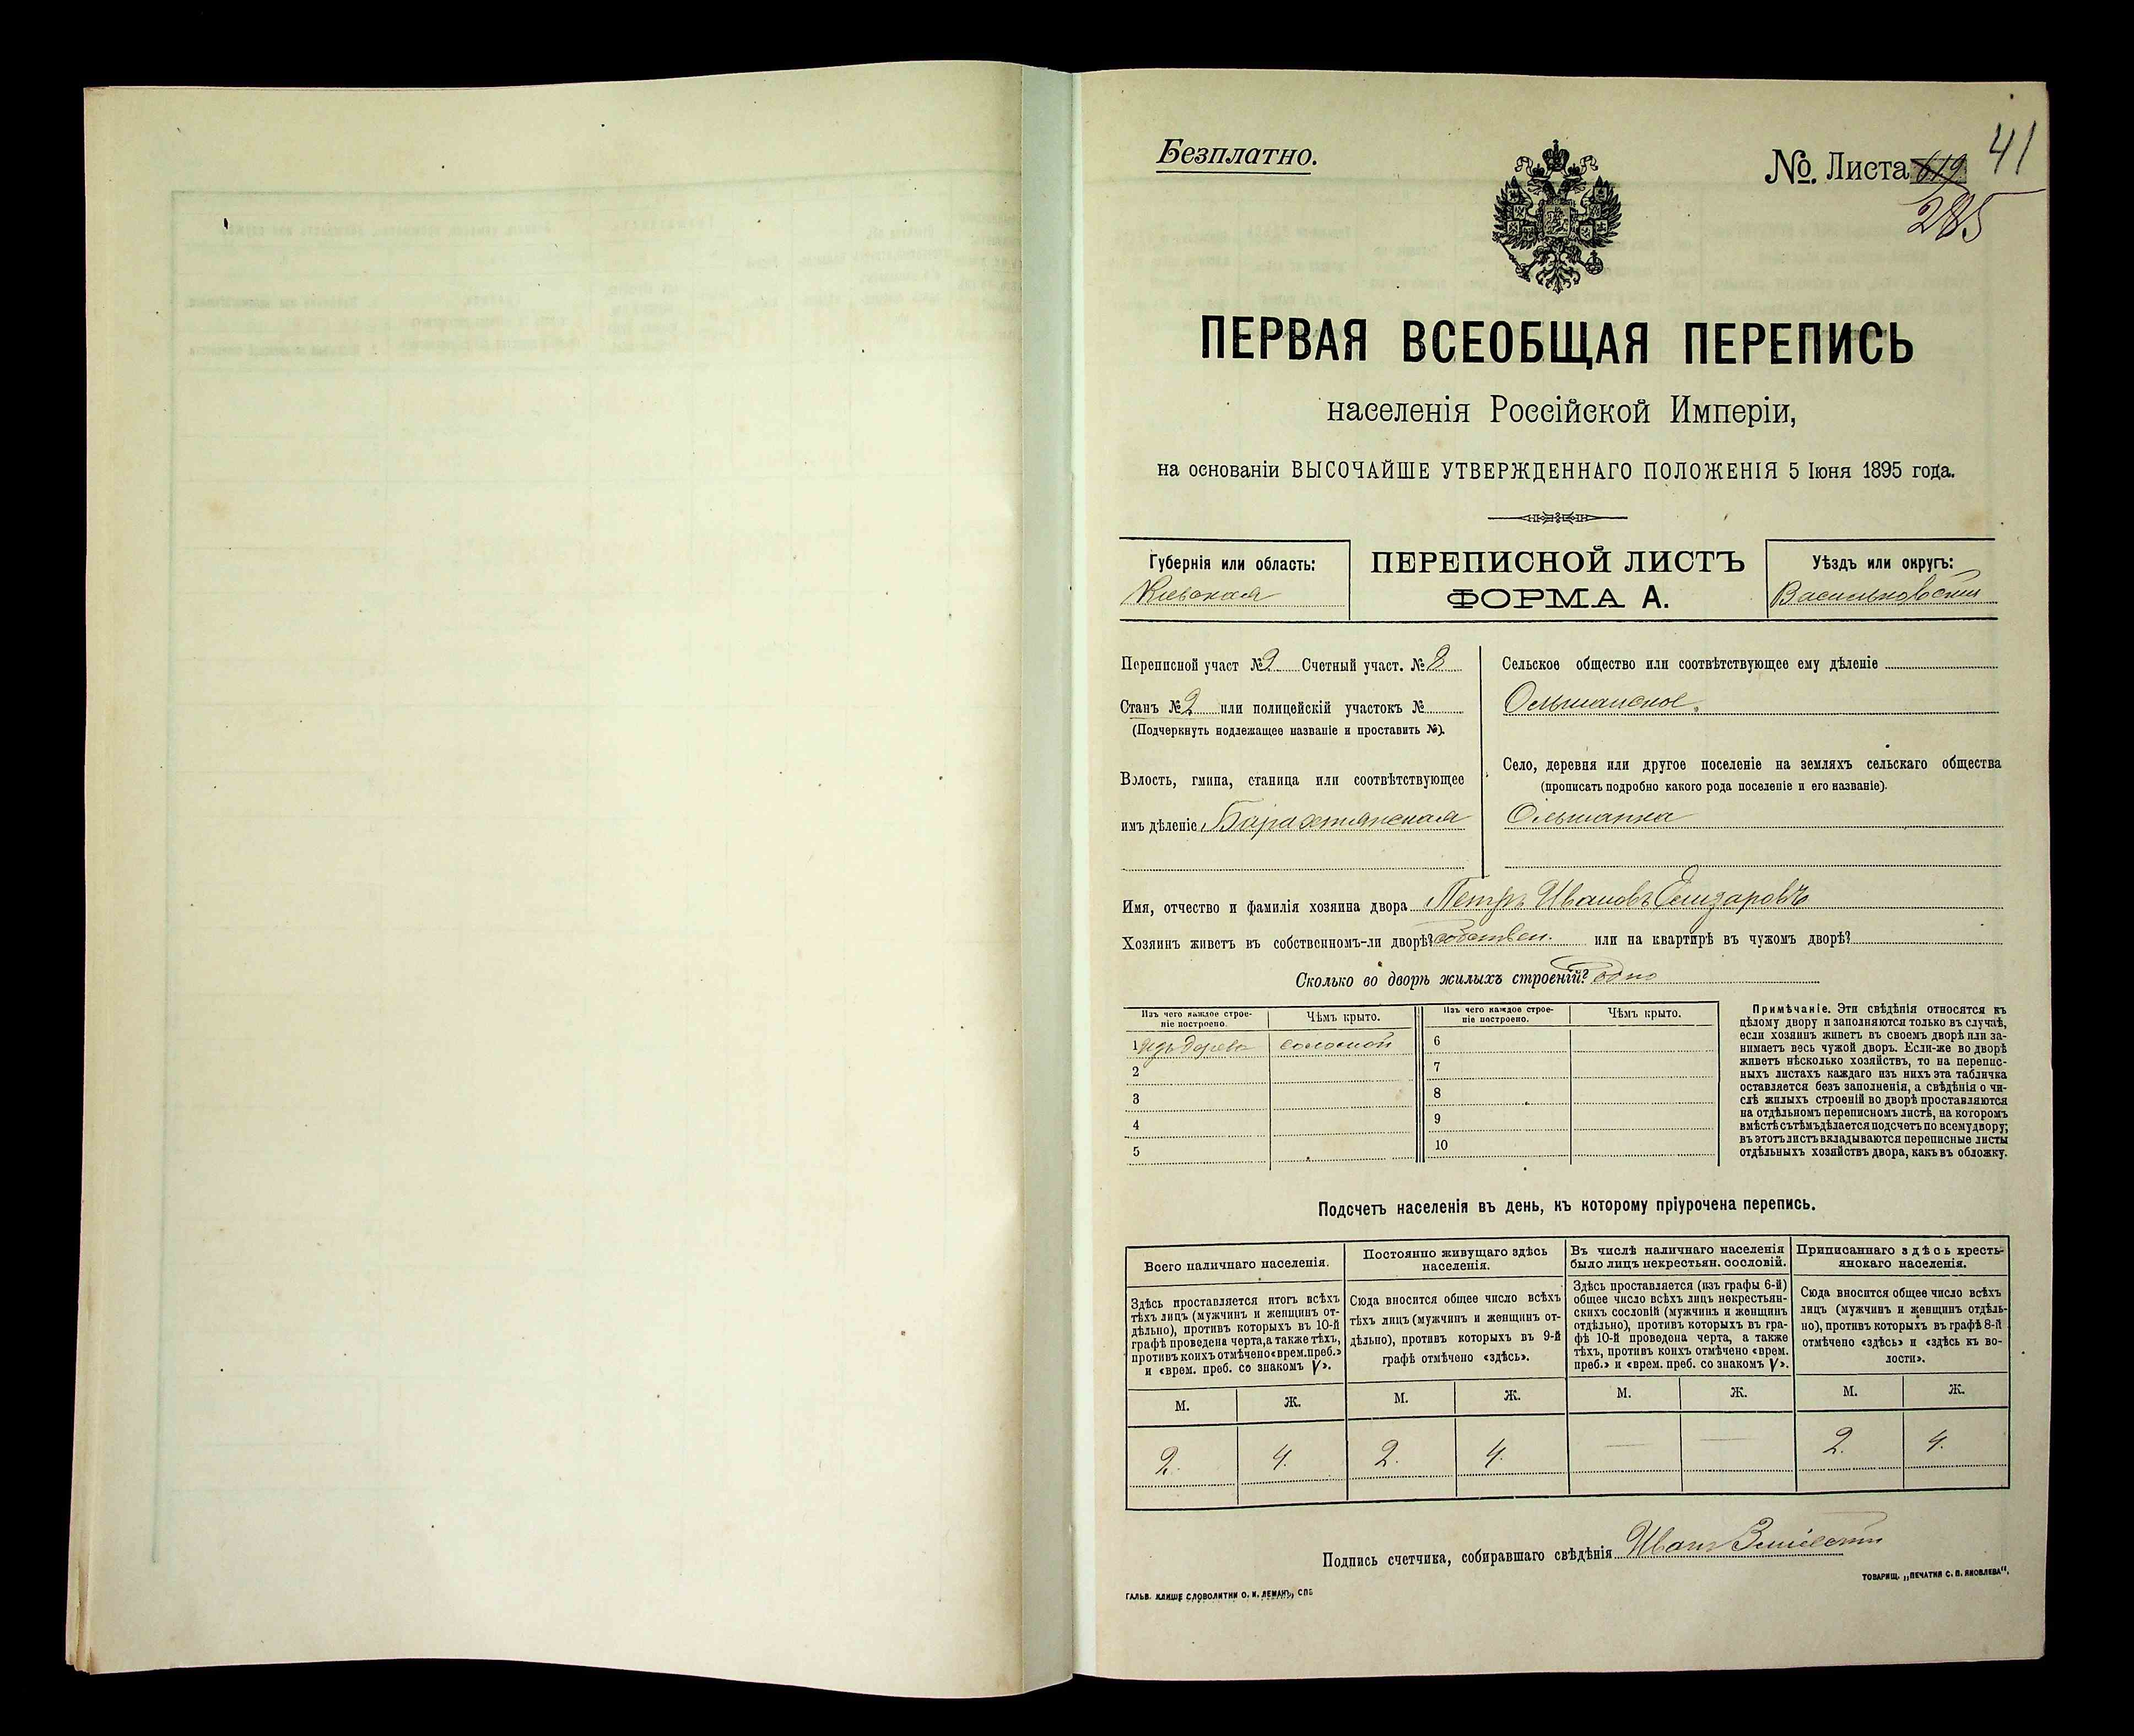 41
Безплатно.
№. Листа 619
285
ПЕРВАЯ ВСЕОБЩАЯ ПЕРЕПИСЬ
населенія Россійской Имперіи,
на основаніи ВЫСОЧАЙШЕ УТВЕРЖДЕННАГО ПОЛОЖЕНІЯ 5 Іюня 1895 года.
Губернія или область:
Кіевская
ПЕРЕПИСНОЙ ЛИСТЪ
ФОРМА А.
Уѣздъ или округъ:
Васильковскій
Переписной участ № 2 Счетный участ. № 8
Станъ № 2 или полицейскій участокъ №
(Подчеркнуть подлежащее названіе и проставить №).
Волость, гмина, станица или соотвѣтствующее
имъ дѣленіе Барахтянская
Сельское общество или соотвѣтствующее ему дѣленіе
Ольшанское.
Село, деревня или другое поселеніе на земляхъ сельскаго общества
(прописать подробно какого рода поселеніе и его названіе).
Ольшанка
Имя, отчество и фамилія хозяина двора Петръ Ивановъ Елизаровъ
Хозяинъ живетъ въ собственномъ-ли дворѣ? собствен. или на квартирѣ въ чужомъ дворѣ?
Сколько во дворѣ жилыхъ строеній? одно
Изъ чего каждое строе-
ніе построено.
Чѣмъ крыто.
Изъ чего каждое строе-
ніе построено.
Чѣмъ крыто.
1 изъ дерева соломой 6
2 7
3 8
4 9
5 10
Примѣчаніе. Эти свѣдѣнія относятся къ
цѣлому двору и заполняются только въ случаѣ,
если хозяинъ живетъ въ своемъ дворѣ или за-
нимаетъ весь чужой дворъ. Если-же во дворѣ
живетъ нѣсколько хозяйствъ, то на перепис-
ныхъ листахъ каждаго изъ нихъ эта табличка
оставляется безъ заполненія, а свѣдѣнія о чи-
слѣ жилыхъ строеній во дворѣ проставляются
на отдѣльномъ переписномъ листѣ, на которомъ
вмѣстѣ съ тѣмъ дѣлается подсчетъ по всему двору;
въ этотъ листъ вкладываются переписные листы
отдѣльныхъ хозяйствъ двора, какъ въ обложку.
Подсчетъ населенія въ день, къ которому пріурочена перепись.
Всего наличнаго населенія.
Здѣсь проставляется итогъ всѣхъ
тѣхъ лицъ (мужчинъ и женщинъ от-
дѣльно), противъ которыхъ въ 10-й
графѣ проведена черта, а также тѣхъ,
противъ коихъ отмѣчено «врем. преб.»
и «врем. преб. со знакомъ V».
М. Ж.
2. 4.
Постоянно живущаго здѣсь
населенія.
Сюда вносится общее число всѣхъ
тѣхъ лицъ (мужчинъ и женщинъ от-
дѣльно), противъ которыхъ въ 9-й
графѣ отмѣчено «здѣсь».
М. Ж.
2. 4.
Въ числѣ наличнаго населенія
было лицъ некрестьян. сословій.
Здѣсь проставляется (изъ графы 6-й)
общее число всѣхъ лицъ некрестьян-
скихъ сословій (мужчинъ и женщинъ
отдѣльно), противъ которыхъ въ гра-
фѣ 10-й проведена черта, а также
тѣхъ, противъ коихъ отмѣчено «врем.
преб.» и «врем. преб. со знакомъ V».
М. Ж.
— —
Приписаннаго здѣсь кресть-
янскаго населенія.
Сюда вносится общее число всѣхъ
лицъ (мужчинъ и женщинъ отдѣль-
но), противъ которыхъ въ графѣ 8-й
отмѣчено «здѣсь» и «здѣсь къ во-
лости».
М. Ж.
2. 4.
Подпись счетчика, собиравшаго свѣдѣнія Иванъ
ГАЛЬВ. КЛИШЕ СЛОВОЛИТНИ О. И. ЛЕМАНЪ, СПБ
ТОВАРИЩ. „ПЕЧАТНЯ С. П. ЯКОВЛЕВА".